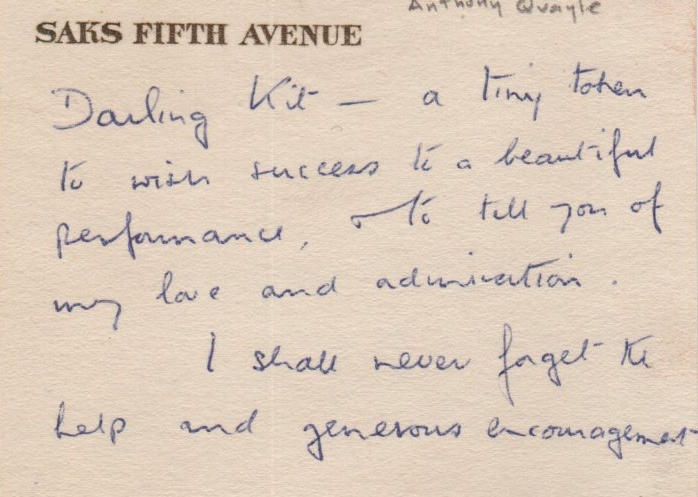 Anthony Quayle
SAKS FIFTH AVENUE
Darling Kit — a tiny token
to wish success to a beautiful
performance, & to tell you of
my love and admiration.
I shall never forget the
help and generous encouragement